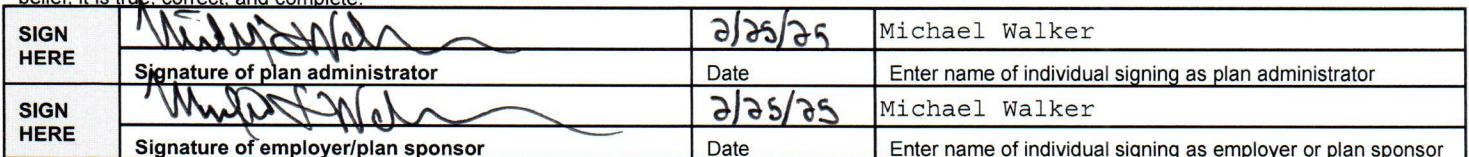 belief, it is true, correct, and complete.
SIGN HERE 2/25/25 Michael Walker
Signature of plan administrator Date Enter name of individual signing as plan administrator
SIGN HERE 2/25/25 Michael Walker
Signature of employer/plan sponsor Date Enter name of individual signing as employer or plan sponsor